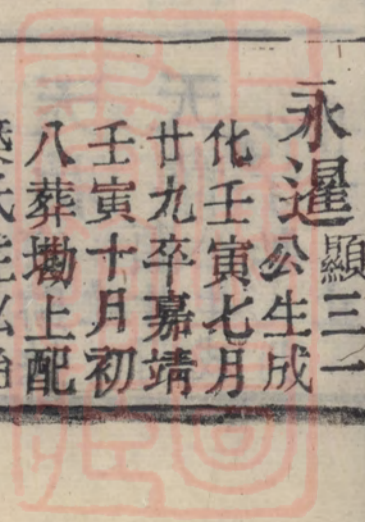 永暹顯三一
公生成
化壬寅七月
廿九卒嘉靖
壬寅十月初
八葬塘上配
氏生弘治